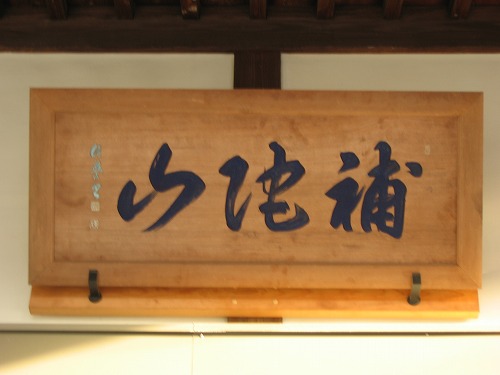 補陀山